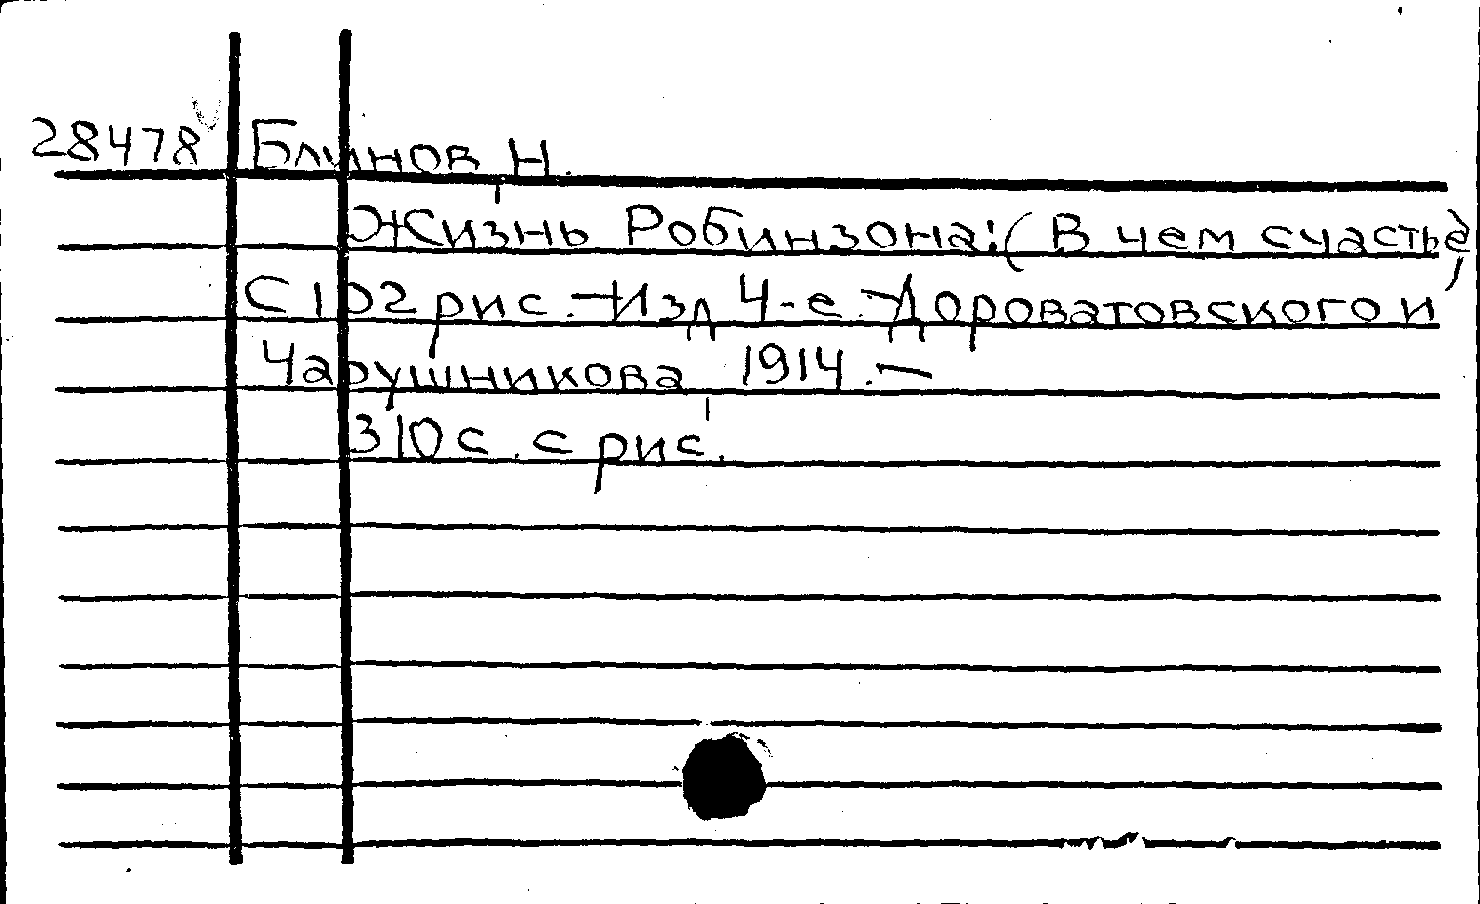 28478 Блинов, Н.
Жизнь Робинзона: (В чем счастье)
С 102 рис. - Изд 4-е. - Дороватовского и
Чарушникова, 1914. -
310 с. с рис.